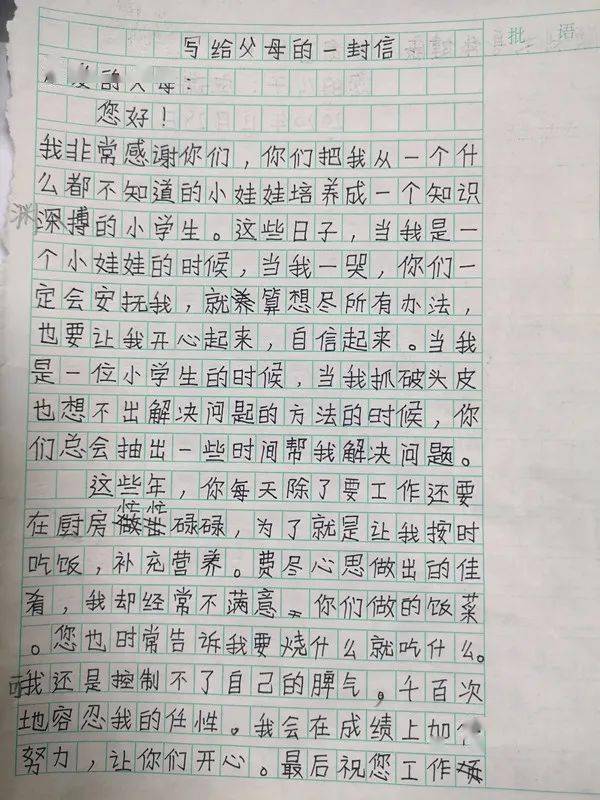 批 语
写给父母的一封信
的父母：
您好！
我非常感谢你们，你们把我从一个什
么都不知道的小娃娃培养成一个知识
渊
深搏的小学生。这些日子，当我是一
个小娃娃的时候，当我一哭，你们一
定会安抚我，就算想尽所有办法，
也要让我开心起来，自信起来。当我
是一位小学生的时候，当我抓破头皮
也想不出解决问题的方法的时候，你
们总会抽出一些时间帮我解决问题。
这些年，你每天除了要工作还要
忙忙
在厨房碌碌，为了就是让我按时
吃饭，补充营养。费尽心思做出的佳
肴，我却经常不满意，你们做的饭菜
。您也时常告诉我要烧什么就吃什么。
可我还是控制不了自己的脾气，千百次
地容忍我的任性。我会在成绩上加
努力，让你们开心。最后祝您工作顺